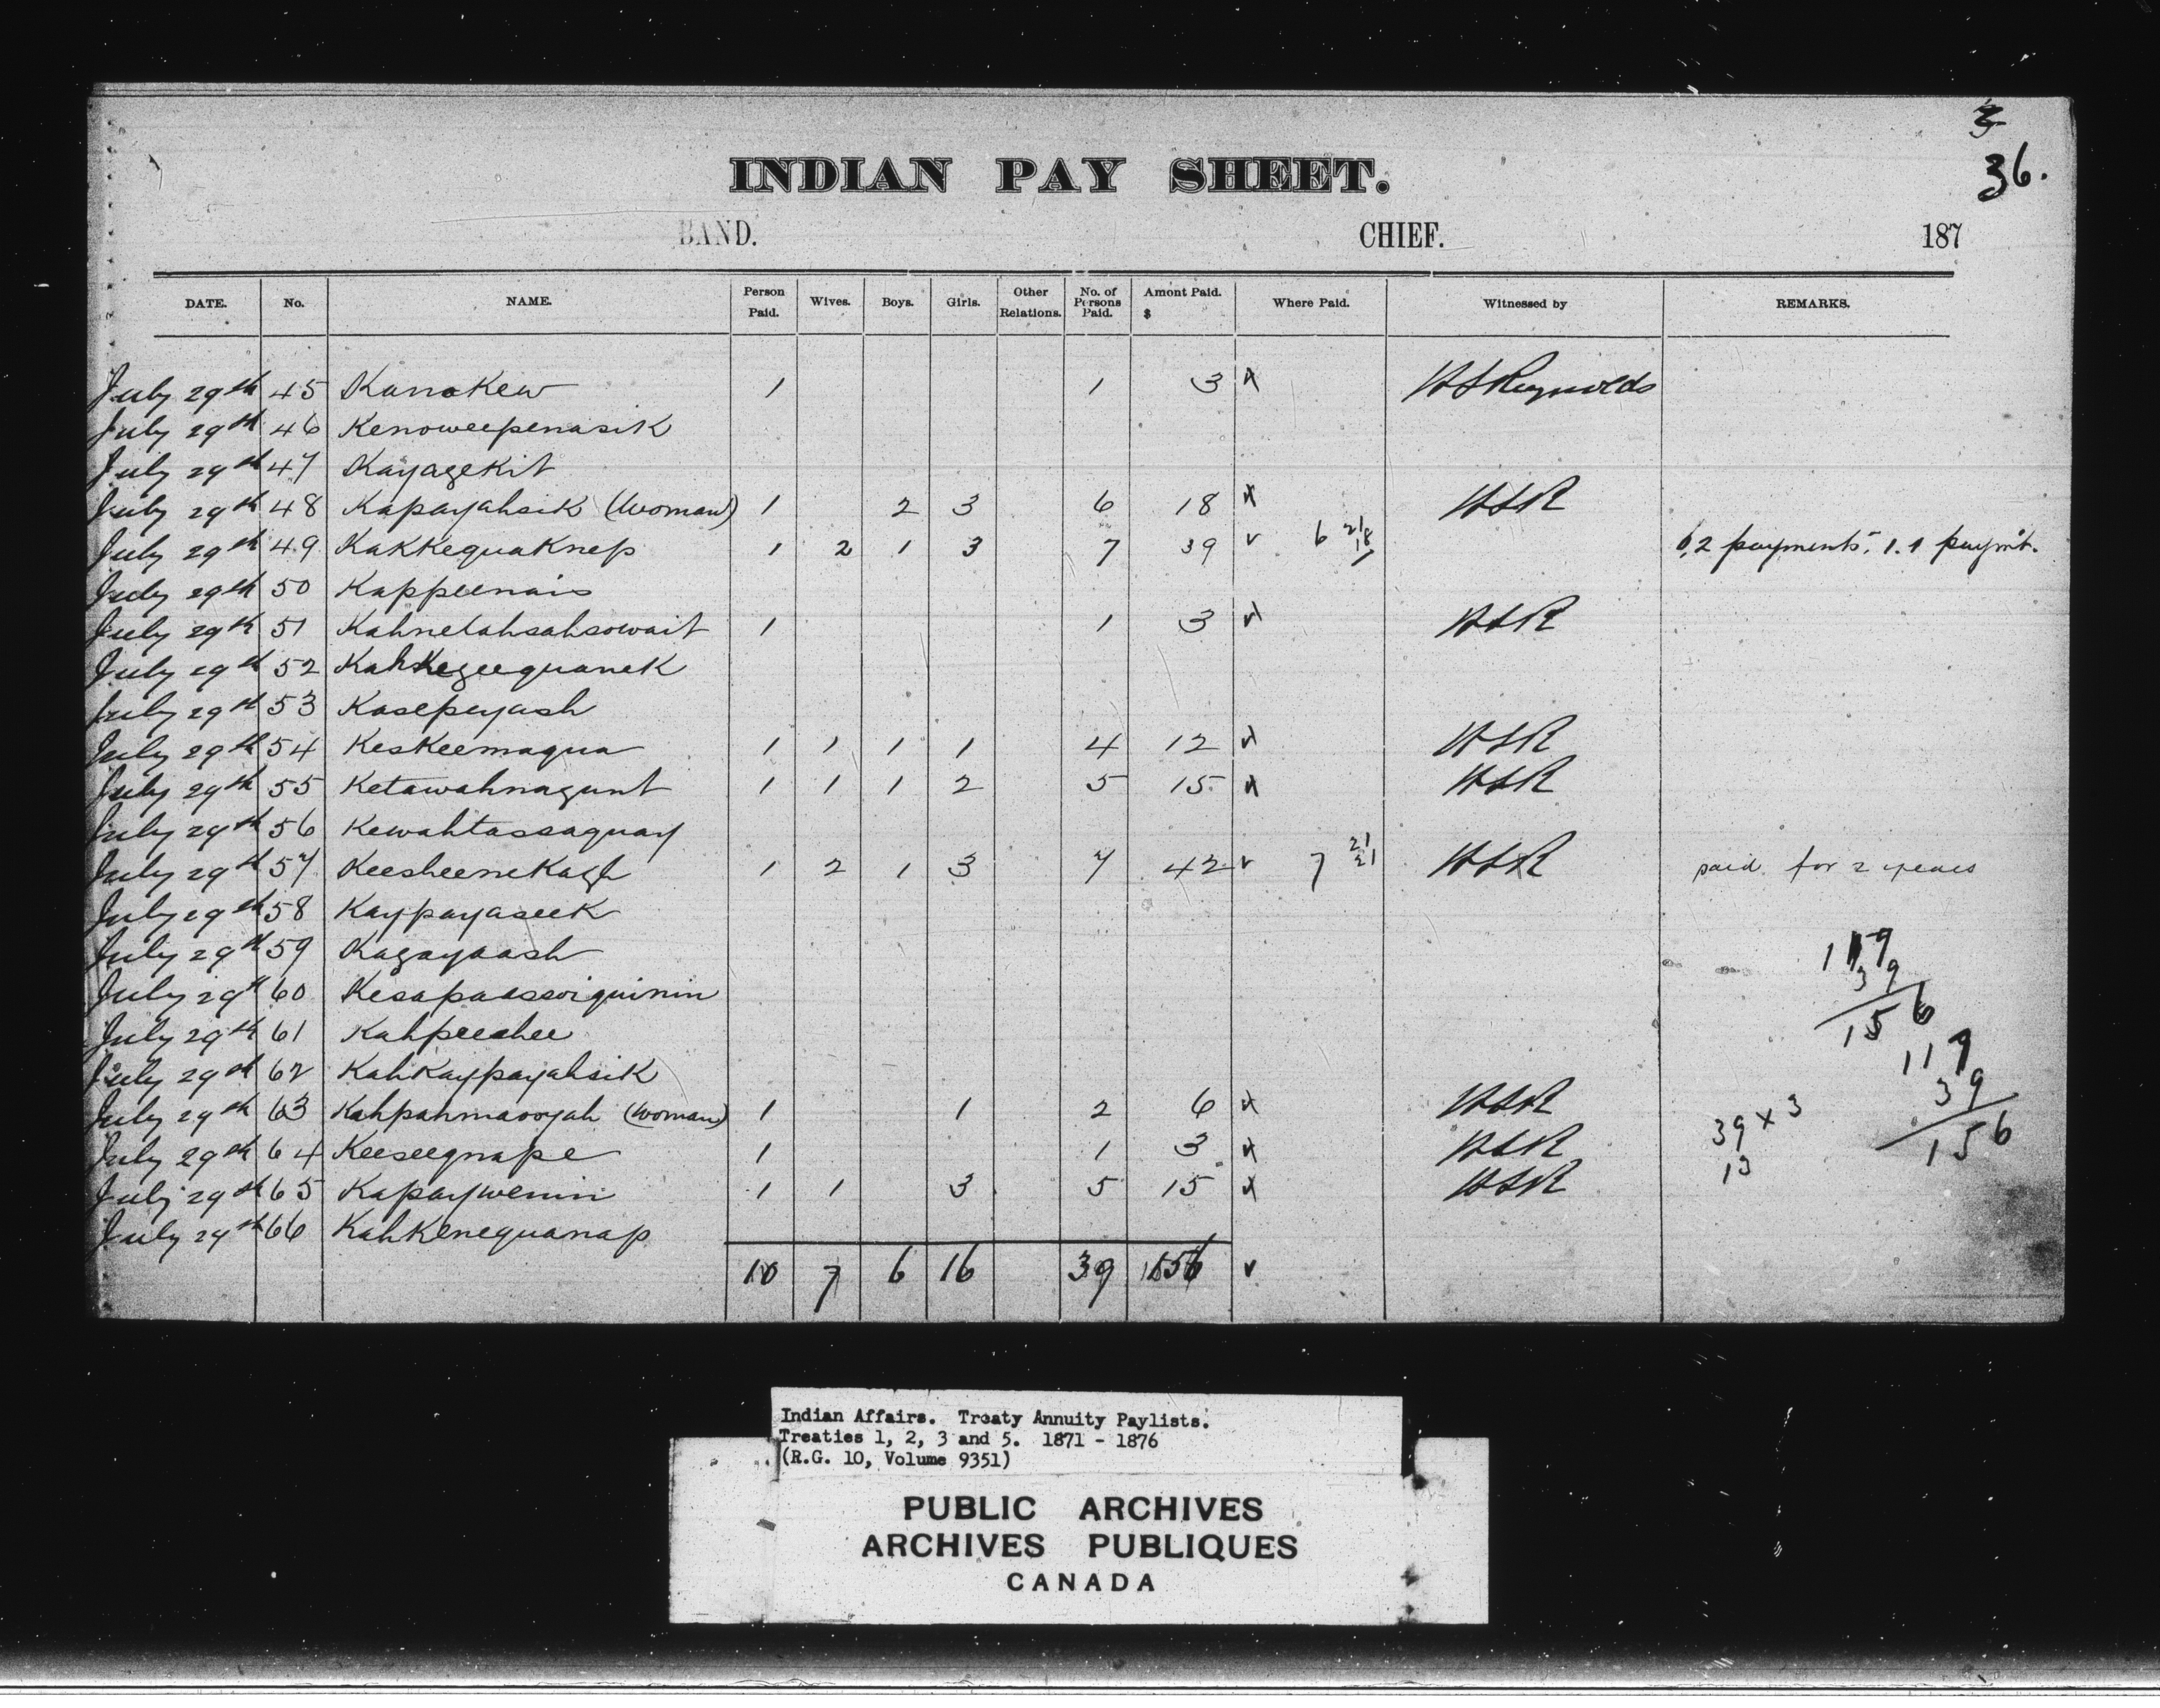 3
36.
INDIAN PAY SHEET.
BAND. CHIEF. 187
DATE. No. NAME. Person Paid. Wives. Boys. Girls. Other Relations. No. of Persons Paid. Amont Paid. $ Where Paid. Witnessed by REMARKS.
July 29th 45 Kanokew 1 1 3 HSReynolds
July 29th 46 Kenoweepenasik
July 29th 47 Kayagekit
July 29th 48 Kapayahsik (Woman) 1 2 3 6 18 HSR
July 29th 49 Kakkequaknep 1 2 1 3 7 39 v 6 21 18 6,2 payments, 1.1 paymt.
July 29th 50 Kappeenais
July 29th 51 Kahnelahsahsowait 1 1 3 HSR
July 29th 52 Kahkezeequanek
July 29th 53 Kasepeyash
July 29th 54 Keskeemaqua 1 1 1 1 4 12 HSR
July 29th 55 Ketawahnagunt 1 1 1 2 5 15 HSR
July 29th 56 Kewahtassaquay
July 29th 57 Keesheenekagh 1 2 1 3 7 42 v 7 21 21 HSR paid for 2 years
July 29th 58 Kaypayaseek
July 29th 59 Kagayaash
July 29th 60 Kesapaassoiquinin
July 29th 61 Kahpeeshee
July 29th 62 Kahkaypayahsik
July 29th 63 Kahpahmaooyah (Woman) 1 1 2 6 HSR
July 29th 64 Keeseegnape 1 1 3 HSR
July 29th 65 Kapaywenin 1 1 3 5 15 HSR
July 29th 66 Kahkenequanap
10 7 6 16 39 156 v
39
156
119
39
156
39 x 3
13
Indian Affairs. Treaty Annuity Paylists.
Treaties 1, 2, 3 and 5. 1871 - 1876
(R.G. 10, Volume 9351)
PUBLIC ARCHIVES
ARCHIVES PUBLIQUES
CANADA